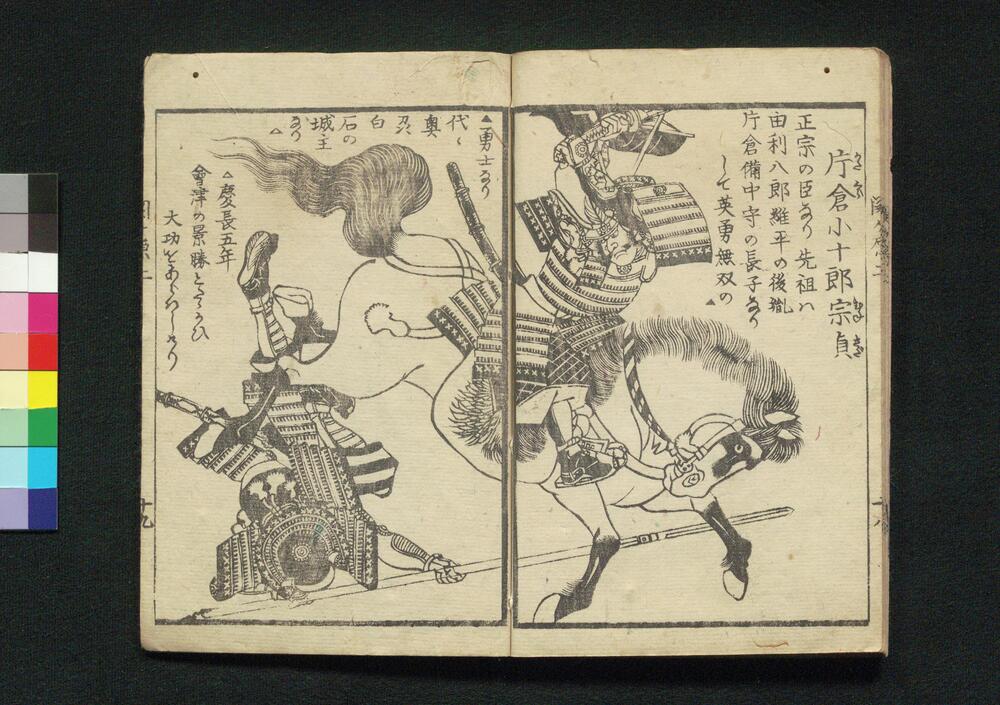 片倉小十郎宗貞
正宗の臣なり先祖ハ
由利八郎維平の後胤
片倉備中守の長子なり
して英勇無双の
▲
▲勇士なり
代々
奥
刕
白
石の
城主
なり
△
△慶長五年
會津の景勝とたゝかひ
大功をあらわしけり
十八
十九